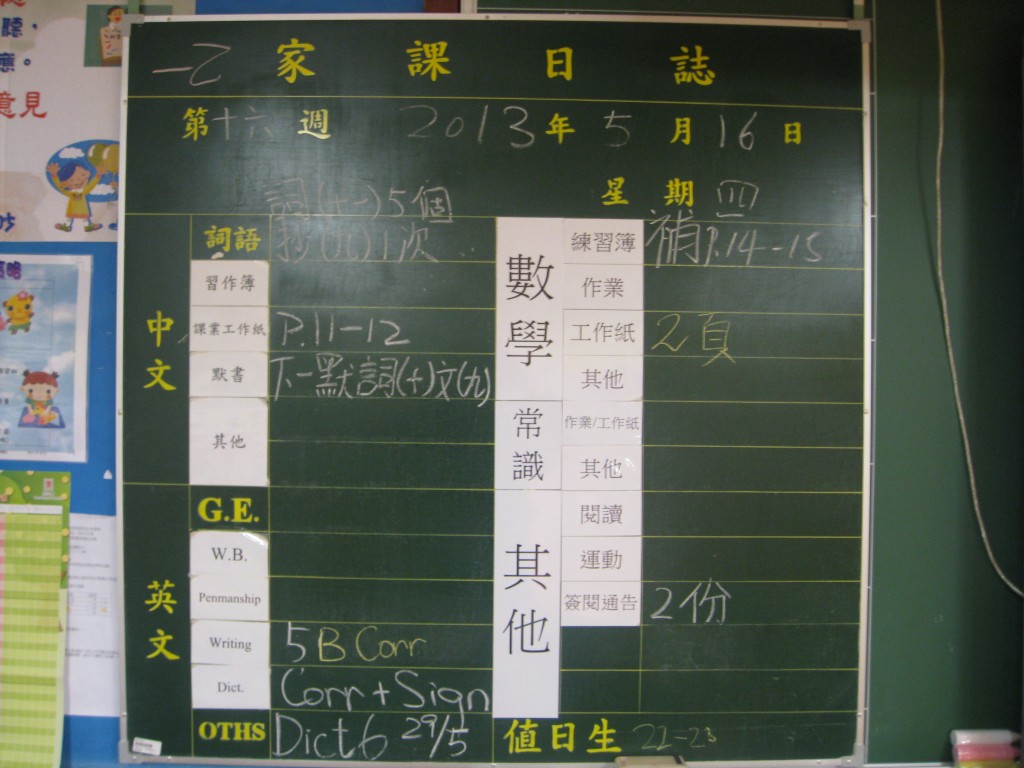 一乙 家課日誌
第十六週 2013年5月16日
星期四
詞(十一)5個
詞語 抄(九)1次
習作簿
課業工作紙 P.11-12
默書 下一默詞(十)文(九)
其他
中文
G.E.
W.B.
Penmanship
Writing 5B Corr
Dict. Corr + Sign
OTHS Dict 6 29/5
英文
數學
練習簿 補P.14-15
作業
工作紙 2頁
其他
常識
作業/工作紙
其他
其他
閱讀
運動
簽閱通告 2份
值日生 22-23
聽,
應。
意見